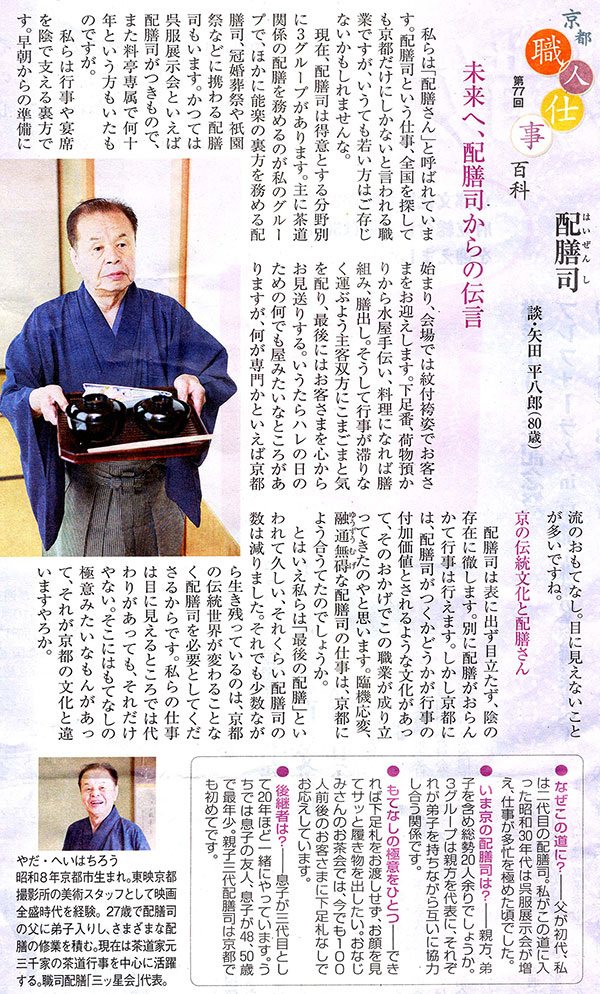 京都
職人仕事
百科
第77回
配膳司
はいぜんし
談・矢田 平八郎(80歳)
未来へ、配膳司からの伝言
私らは「配膳さん」と呼ばれていま
す。配膳司という仕事、全国を探して
も京都だけにしかないと言われる職
業ですが、いうても若い方はご存じ
ないかもしれませんな。
現在、配膳司は得意とする分野別
に3グループがあります。主に茶道
関係の配膳を務めるのが私のグルー
プで、ほかに能楽の裏方を務める配
膳司、冠婚葬祭や祇園
祭などに携わる配膳
司もいます。かつては
呉服展示会といえば
配膳司がつきもので、
また料亭専属で何十
年という方もいたも
のですが。
私らは行事や宴席
を陰で支える裏方で
す。早朝からの準備に
始まり、会場では紋付袴姿でお客さ
まをお迎えします。下足番、荷物預か
りから水屋手伝い、料理になれば膳
組み、膳出し。そうして行事が滞りな
く運ぶよう主客双方にこまごまと気
を配り、最後にはお客さまを心から
お見送りする。いうたらハレの日の
ための何でも屋みたいなところがあ
りますが、何が専門かといえば京都
流のおもてなし。目に見えないこと
が多いですね。
京の伝統文化と配膳さん
配膳司は表に出ず目立たず、陰の
存在に徹します。別に配膳がおらん
かて行事は行えます。しかし京都に
は、配膳司がつくかどうかが行事の
付加価値とされるような文化があっ
て、そのおかげでこの職業が成り立
ってきたのやと思います。臨機応変、
融通無碍な配膳司の仕事は、京都に
ゆうずうむげ
よう合うてたのでしょうか。
とはいえ私らは「最後の配膳」とい
われて久しい、それくらい配膳司の
数は減りました。それでも少数なが
ら生き残っているのは、京都
の伝統世界が変わることな
く配膳司を必要としてくだ
さるからです。私らの仕事
は目に見えるところでは代
わりがあっても、それだけ
やない。そこにはもてなしの
極意みたいなもんがあっ
て、それが京都の文化と違
いますやろか。
●なぜこの道に？――父が初代、私
は二代目の配膳司。私がこの道に入
った昭和30年代は呉服展示会が増
え、仕事が多忙を極めた頃でした。
●いま京の配膳司は？――親方、弟
子を含め総勢20人余りでしょうか。
3グループは親方を代表に、それぞ
れが弟子を持ちながら互いに協力
し合う関係です。
●もてなしの極意をひとつ――でき
れば下足札をお渡しせず、お顔を見
てサッと履き物を出したい。おなじ
みさんのお茶会では、今でも100
人前後のお客さまに下足札なしで
お応えしています。
●後継者は？――息子が三代目とし
て20年ほど一緒にやっています。う
ちでは息子の友人、息子が48、50歳
で最年少。親子三代配膳司は京都で
も初めてです。
やだ・へいはちろう
昭和8年京都市生まれ。東映京都
撮影所の美術スタッフとして映画
全盛時代を経験。27歳で配膳司
の父に弟子入りし、さまざまな配
膳の修業を積む。現在は茶道家元
三千家の茶道行事を中心に活躍
する。職司配膳「三ッ星会」代表。